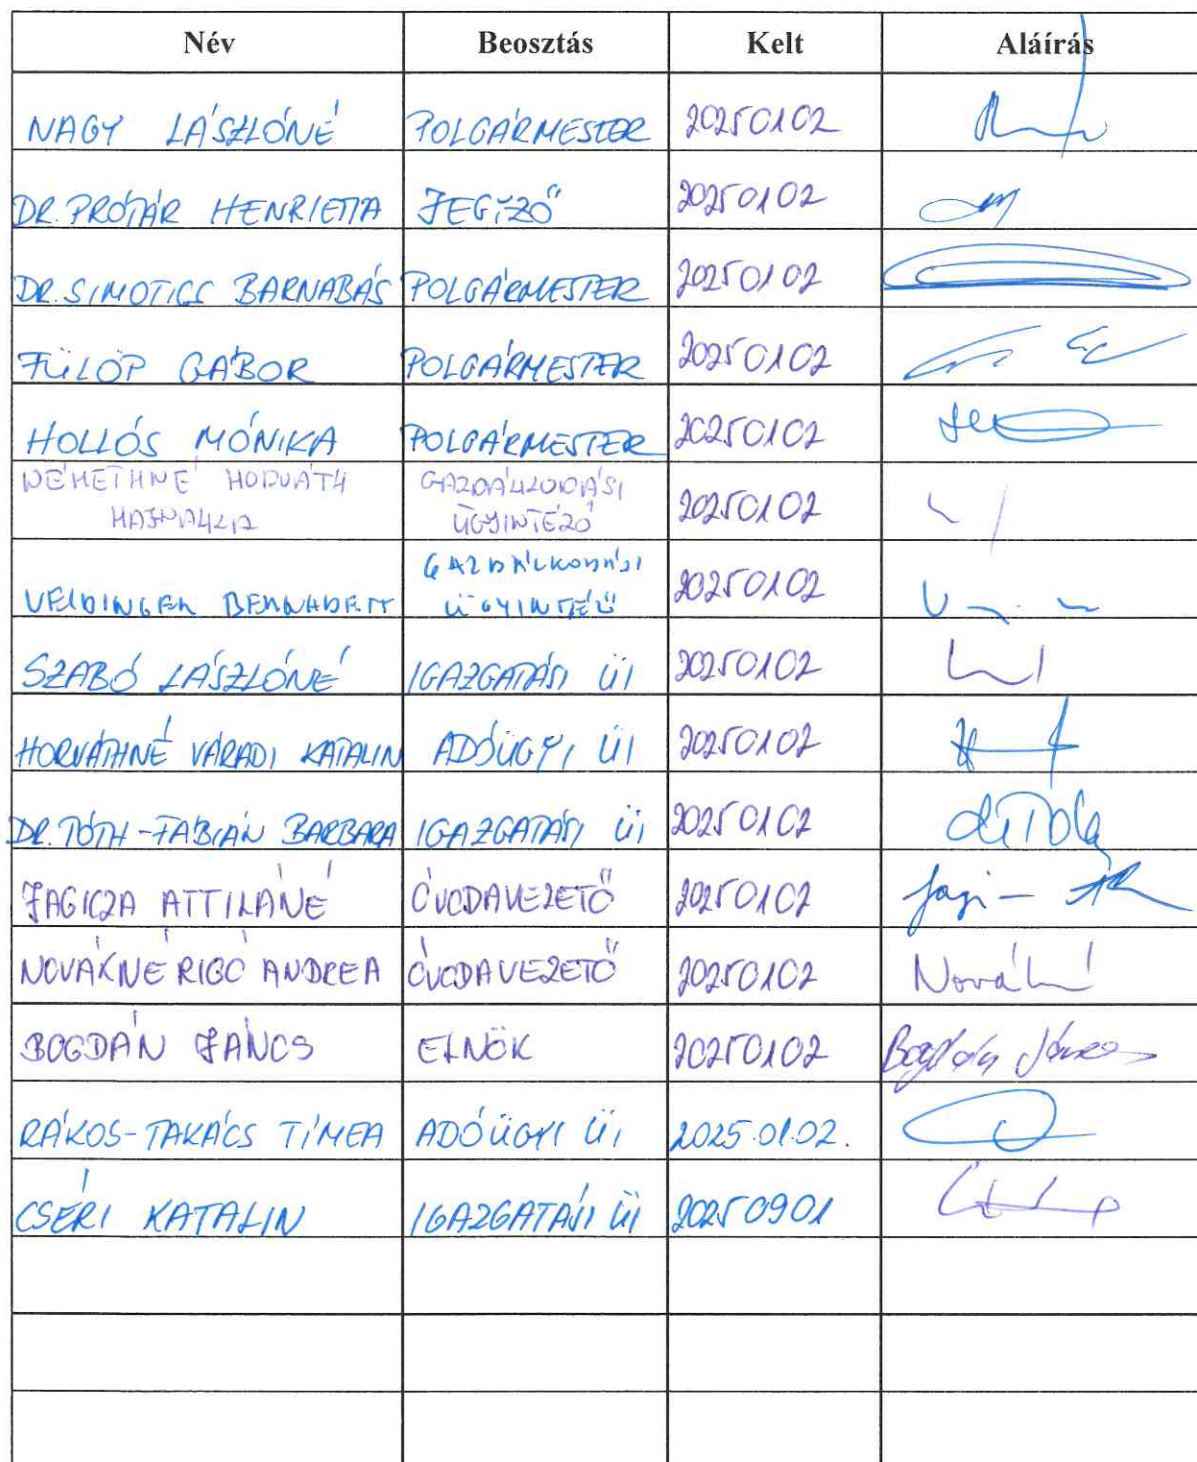 Név Beosztás Kelt Aláírás
NAGY LÁSZLÓNÉ POLGÁRMESTER 20250102
DR. PRÓTÁR HENRIETTA JEGYZŐ 20250102
DR. SIMOTICS BARNABÁS POLGÁRMESTER 20250102
FÜLÖP GÁBOR POLGÁRMESTER 20250102
HOLLÓS MÓNIKA POLGÁRMESTER 20250102
NÉMETHNÉ HORVÁTH GAZDÁLKODÁSI
HAJNALKA ÜGYINTÉZŐ 20250102
GAZDÁLKODÁSI
VEIDINGER BERNADETT ÜGYINTÉZŐ 20250102
SZABÓ LÁSZLÓNÉ IGAZGATÁSI ÜI 20250102
HORVÁTHNÉ VÁRADI KATALIN ADÓÜGYI ÜI 20250102
DR. TÓTH-FÁBIÁN BARBARA IGAZGATÁSI ÜI 20250102
JAGICZA ATTILÁNÉ ÓVODAVEZETŐ 20250102
NOVÁKNÉ RIGÓ ANDREA ÓVODAVEZETŐ 20250102
BOGDÁN JÁNOS ELNÖK 20250102 Bogdán János
RÁKOS-TAKÁCS TÍMEA ADÓÜGYI ÜI 2025.01.02.
CSÉRI KATALIN IGAZGATÁSI ÜI 20250901